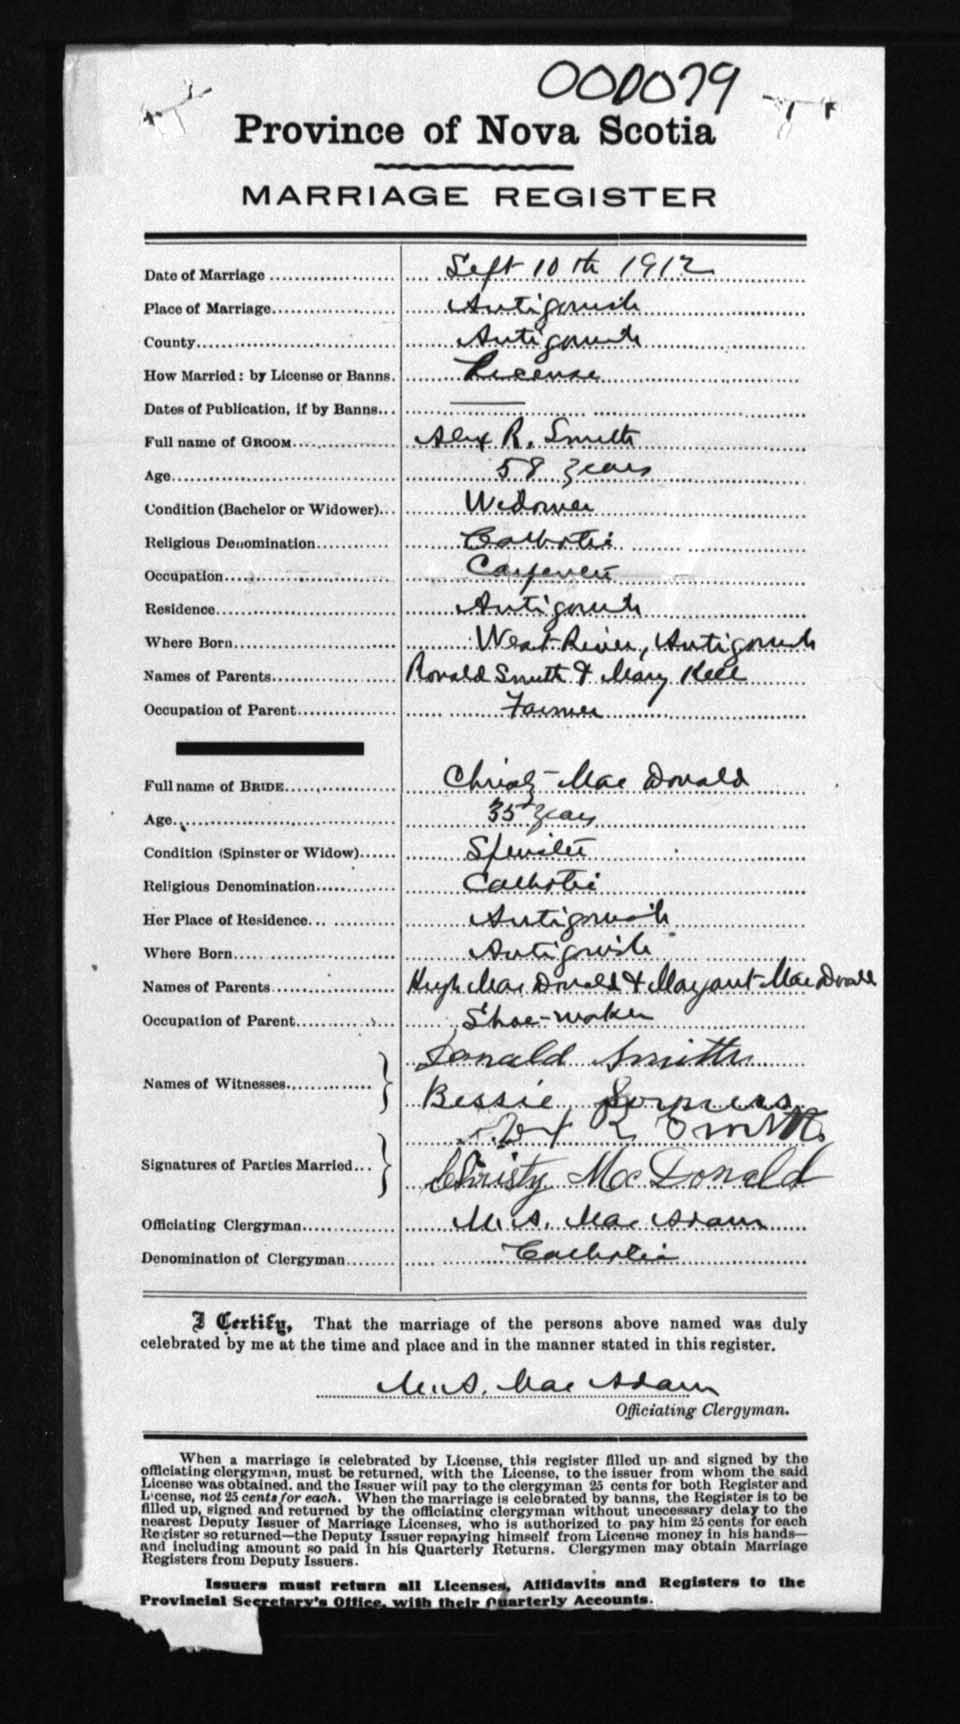 000079
Province of Nova Scotia
MARRIAGE REGISTER
Date of Marriage Sept 10th 1912
Place of Marriage Antigonish
County Antigonish
How Married: by License or Banns. License
Dates of Publication, if by Banns
Full name of GROOM Alex R. Smith
Age 58 years
Condition (Bachelor or Widower) Widower
Religious Denomination Catholic
Occupation Carpenter
Residence Antigonish
Where Born West River, Antigonish
Names of Parents Ronald Smith & Mary Kell
Occupation of Parent Farmer
Full name of BRIDE Christy MacDonald
Age 35 years
Condition (Spinster or Widow) Spinster
Religious Denomination Catholic
Her Place of Residence Antigonish
Where Born Antigonish
Names of Parents Hugh MacDonald & Margaret MacDonald
Occupation of Parent Shoe-maker
Names of Witnesses Donald Smith
Bessie
Signatures of Parties Married Alex R Smith
Christy McDonald
Officiating Clergyman M. A. MacAdam
Denomination of Clergyman Catholic
I Certify, That the marriage of the persons above named was duly
celebrated by me at the time and place and in the manner stated in this register.
M. A. MacAdam
Officiating Clergyman.
When a marriage is celebrated by License, this register filled up and signed by the
officiating clergyman, must be returned, with the License, to the issuer from whom the said
License was obtained, and the Issuer will pay to the clergyman 25 cents for both Register and
License, not 25 cents for each. When the marriage is celebrated by banns, the Register is to be
filled up, signed and returned by the officiating clergyman without unnecessary delay to the
nearest Deputy Issuer of Marriage Licenses, who is authorized to pay him 25 cents for each
Register so returned—the Deputy Issuer repaying himself from License money in his hands—
and including amount so paid in his Quarterly Returns. Clergymen may obtain Marriage
Registers from Deputy Issuers.
Issuers must return all Licenses, Affidavits and Registers to the
Provincial Secretary's Office, with their Quarterly Accounts.